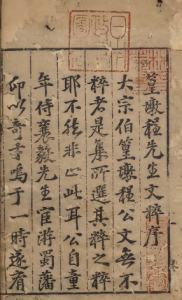 篁墩程先生文粹序
大宗伯篁墩程公文無不
粹者是集所選其粹之粹
耶不然非止此耳公自童
年侍襄毅先生宦游蜀藩
卽以奇童鳴于一時遂有